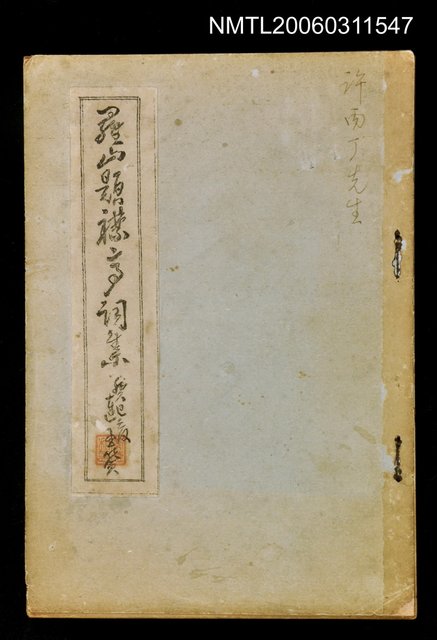 NMTL20060311547
許丙丁先生
羅山題襟亭詞集